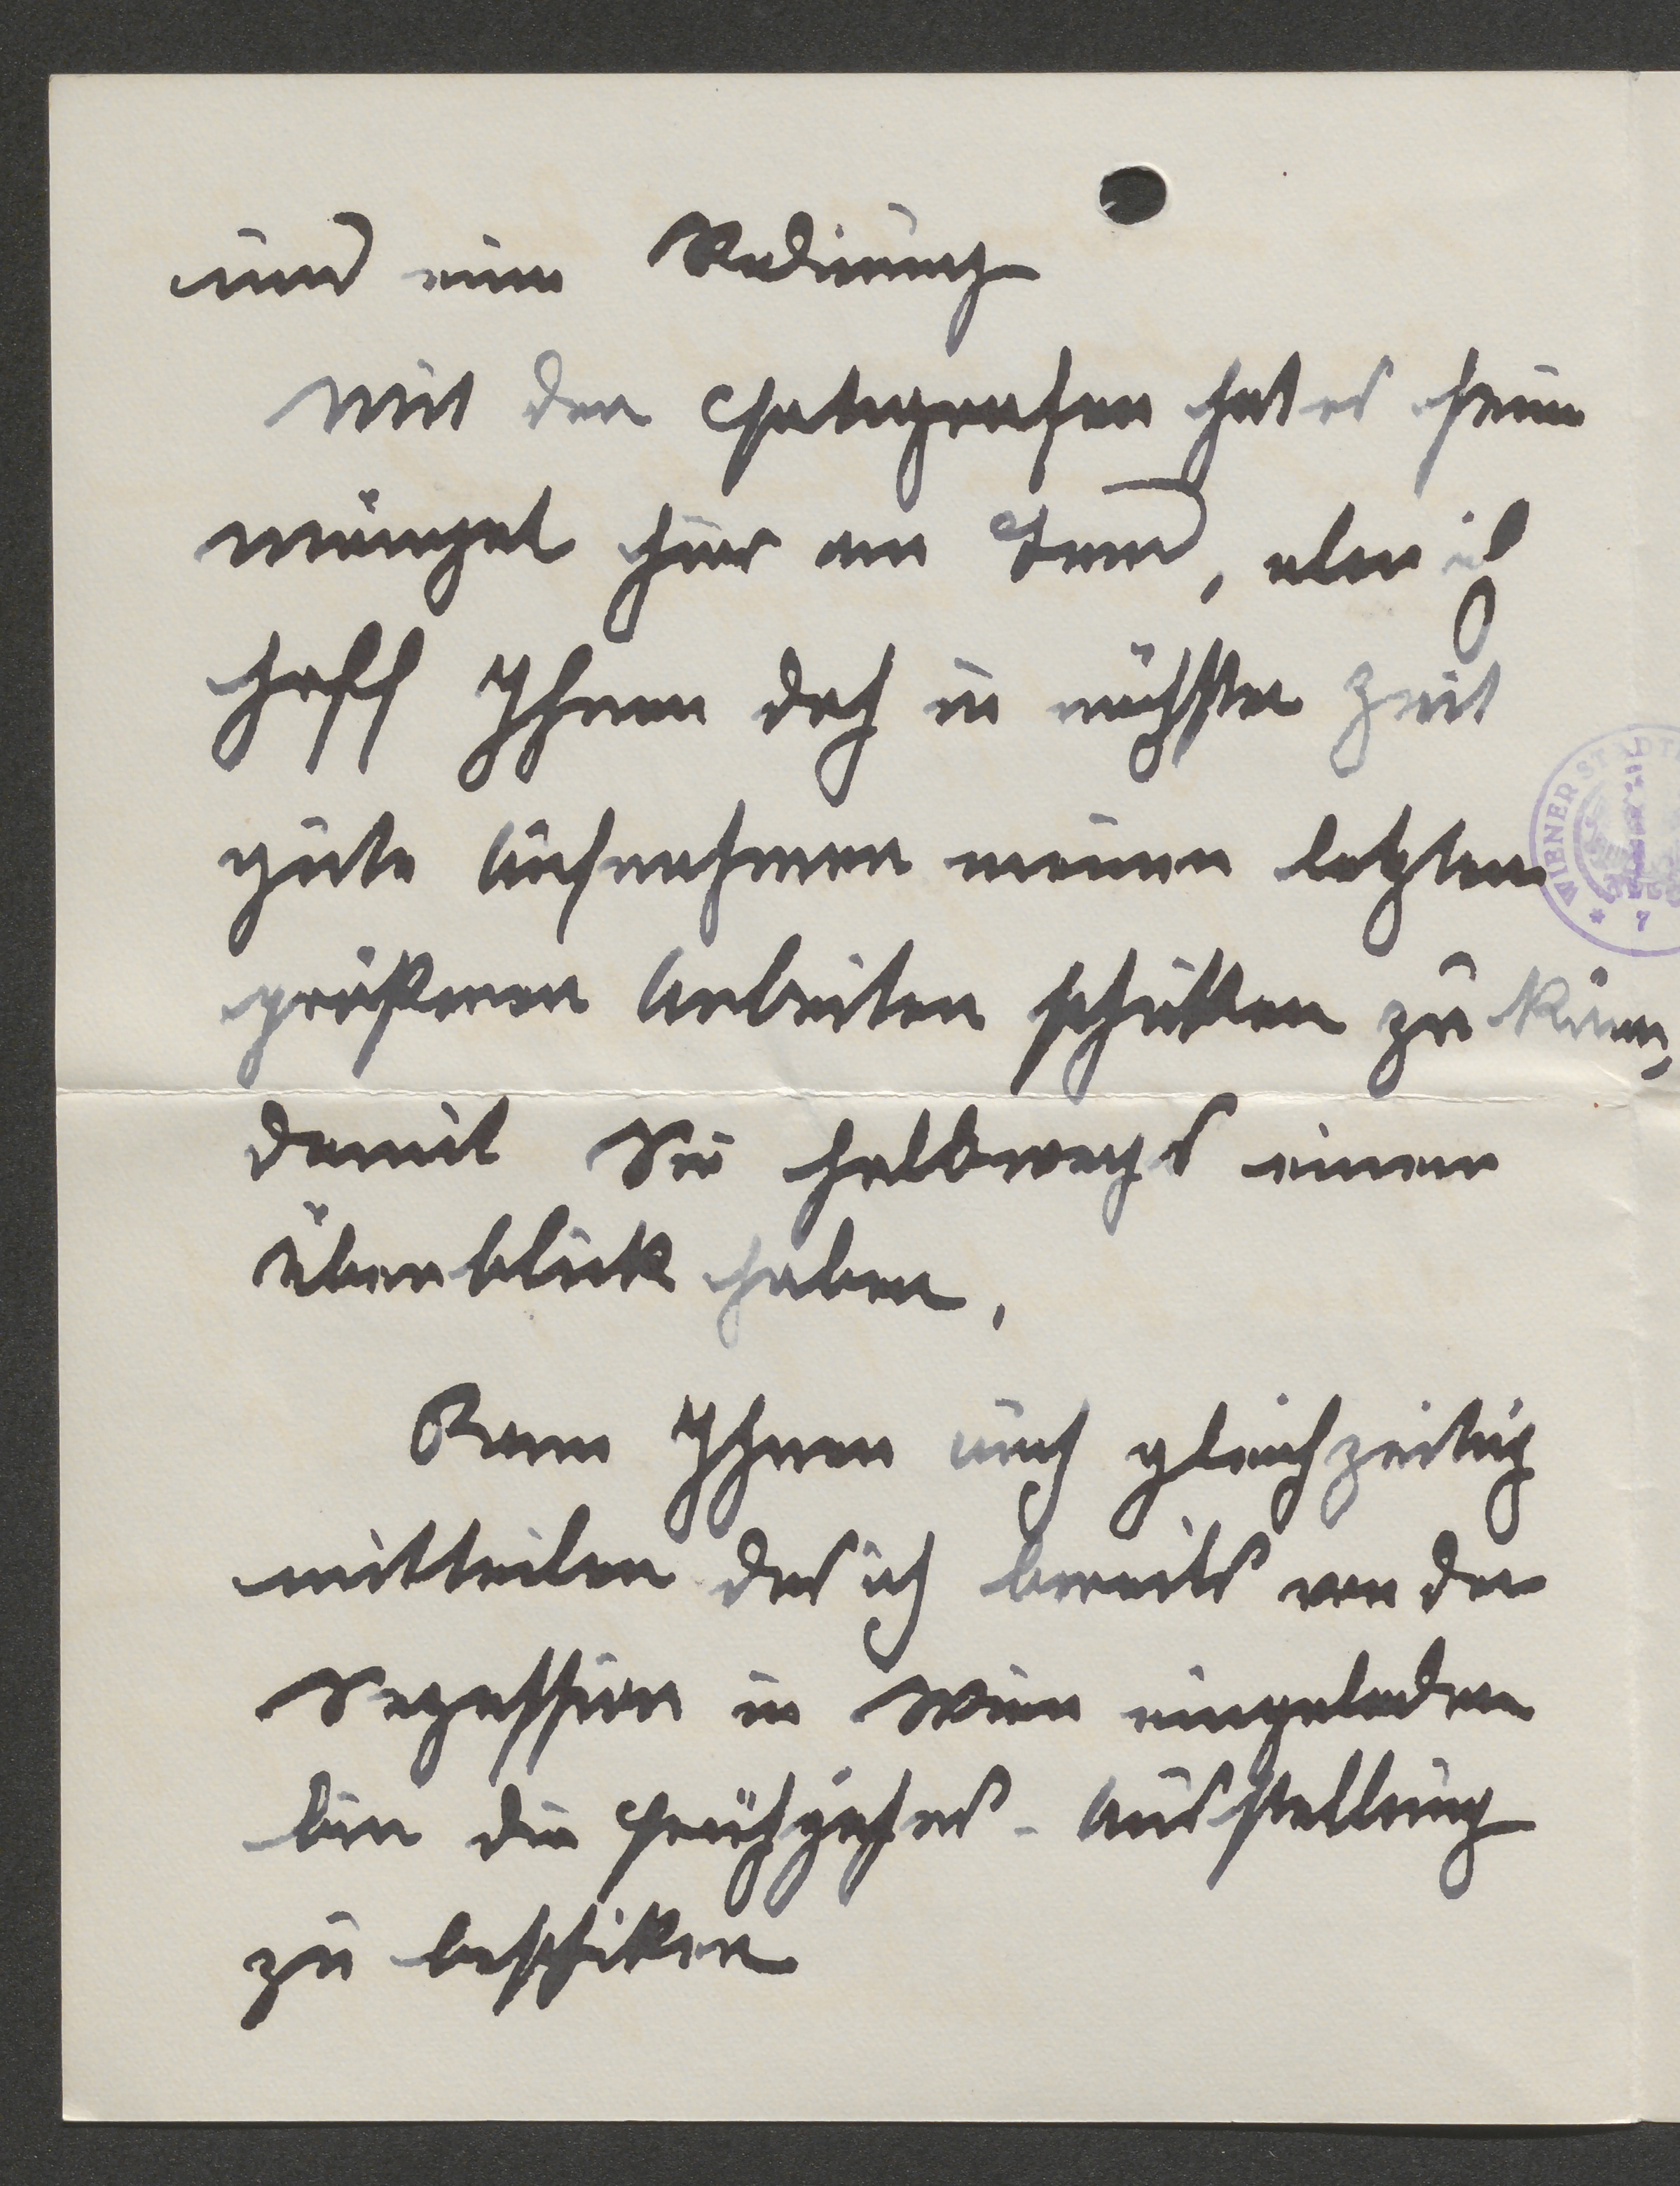 und eine Radierung
Mit den Fotografen hat es seine
mängel hier am Land, aber ich
hoff Ihnen doch in nächster Zeit
gute Aufnahmen meiner letzten
größeren Arbeiten schiken zu könn,
damit Sie halbwegs einen
Überblick haben.
Kann Ihnen auch gleichzeitig
mitteilen das ich bereits von der
Sezession in Wien eingeladen
bin die Frühjahrs-Ausstellung
zu beschiken
WIENER STÄDT
* 7